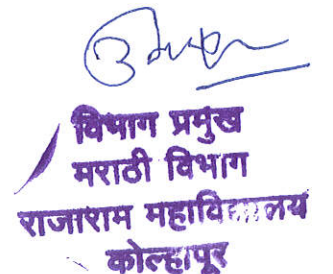 विभाग प्रमुख
मराठी विभाग
राजाराम महाविद्यालय
कोल्हापूर